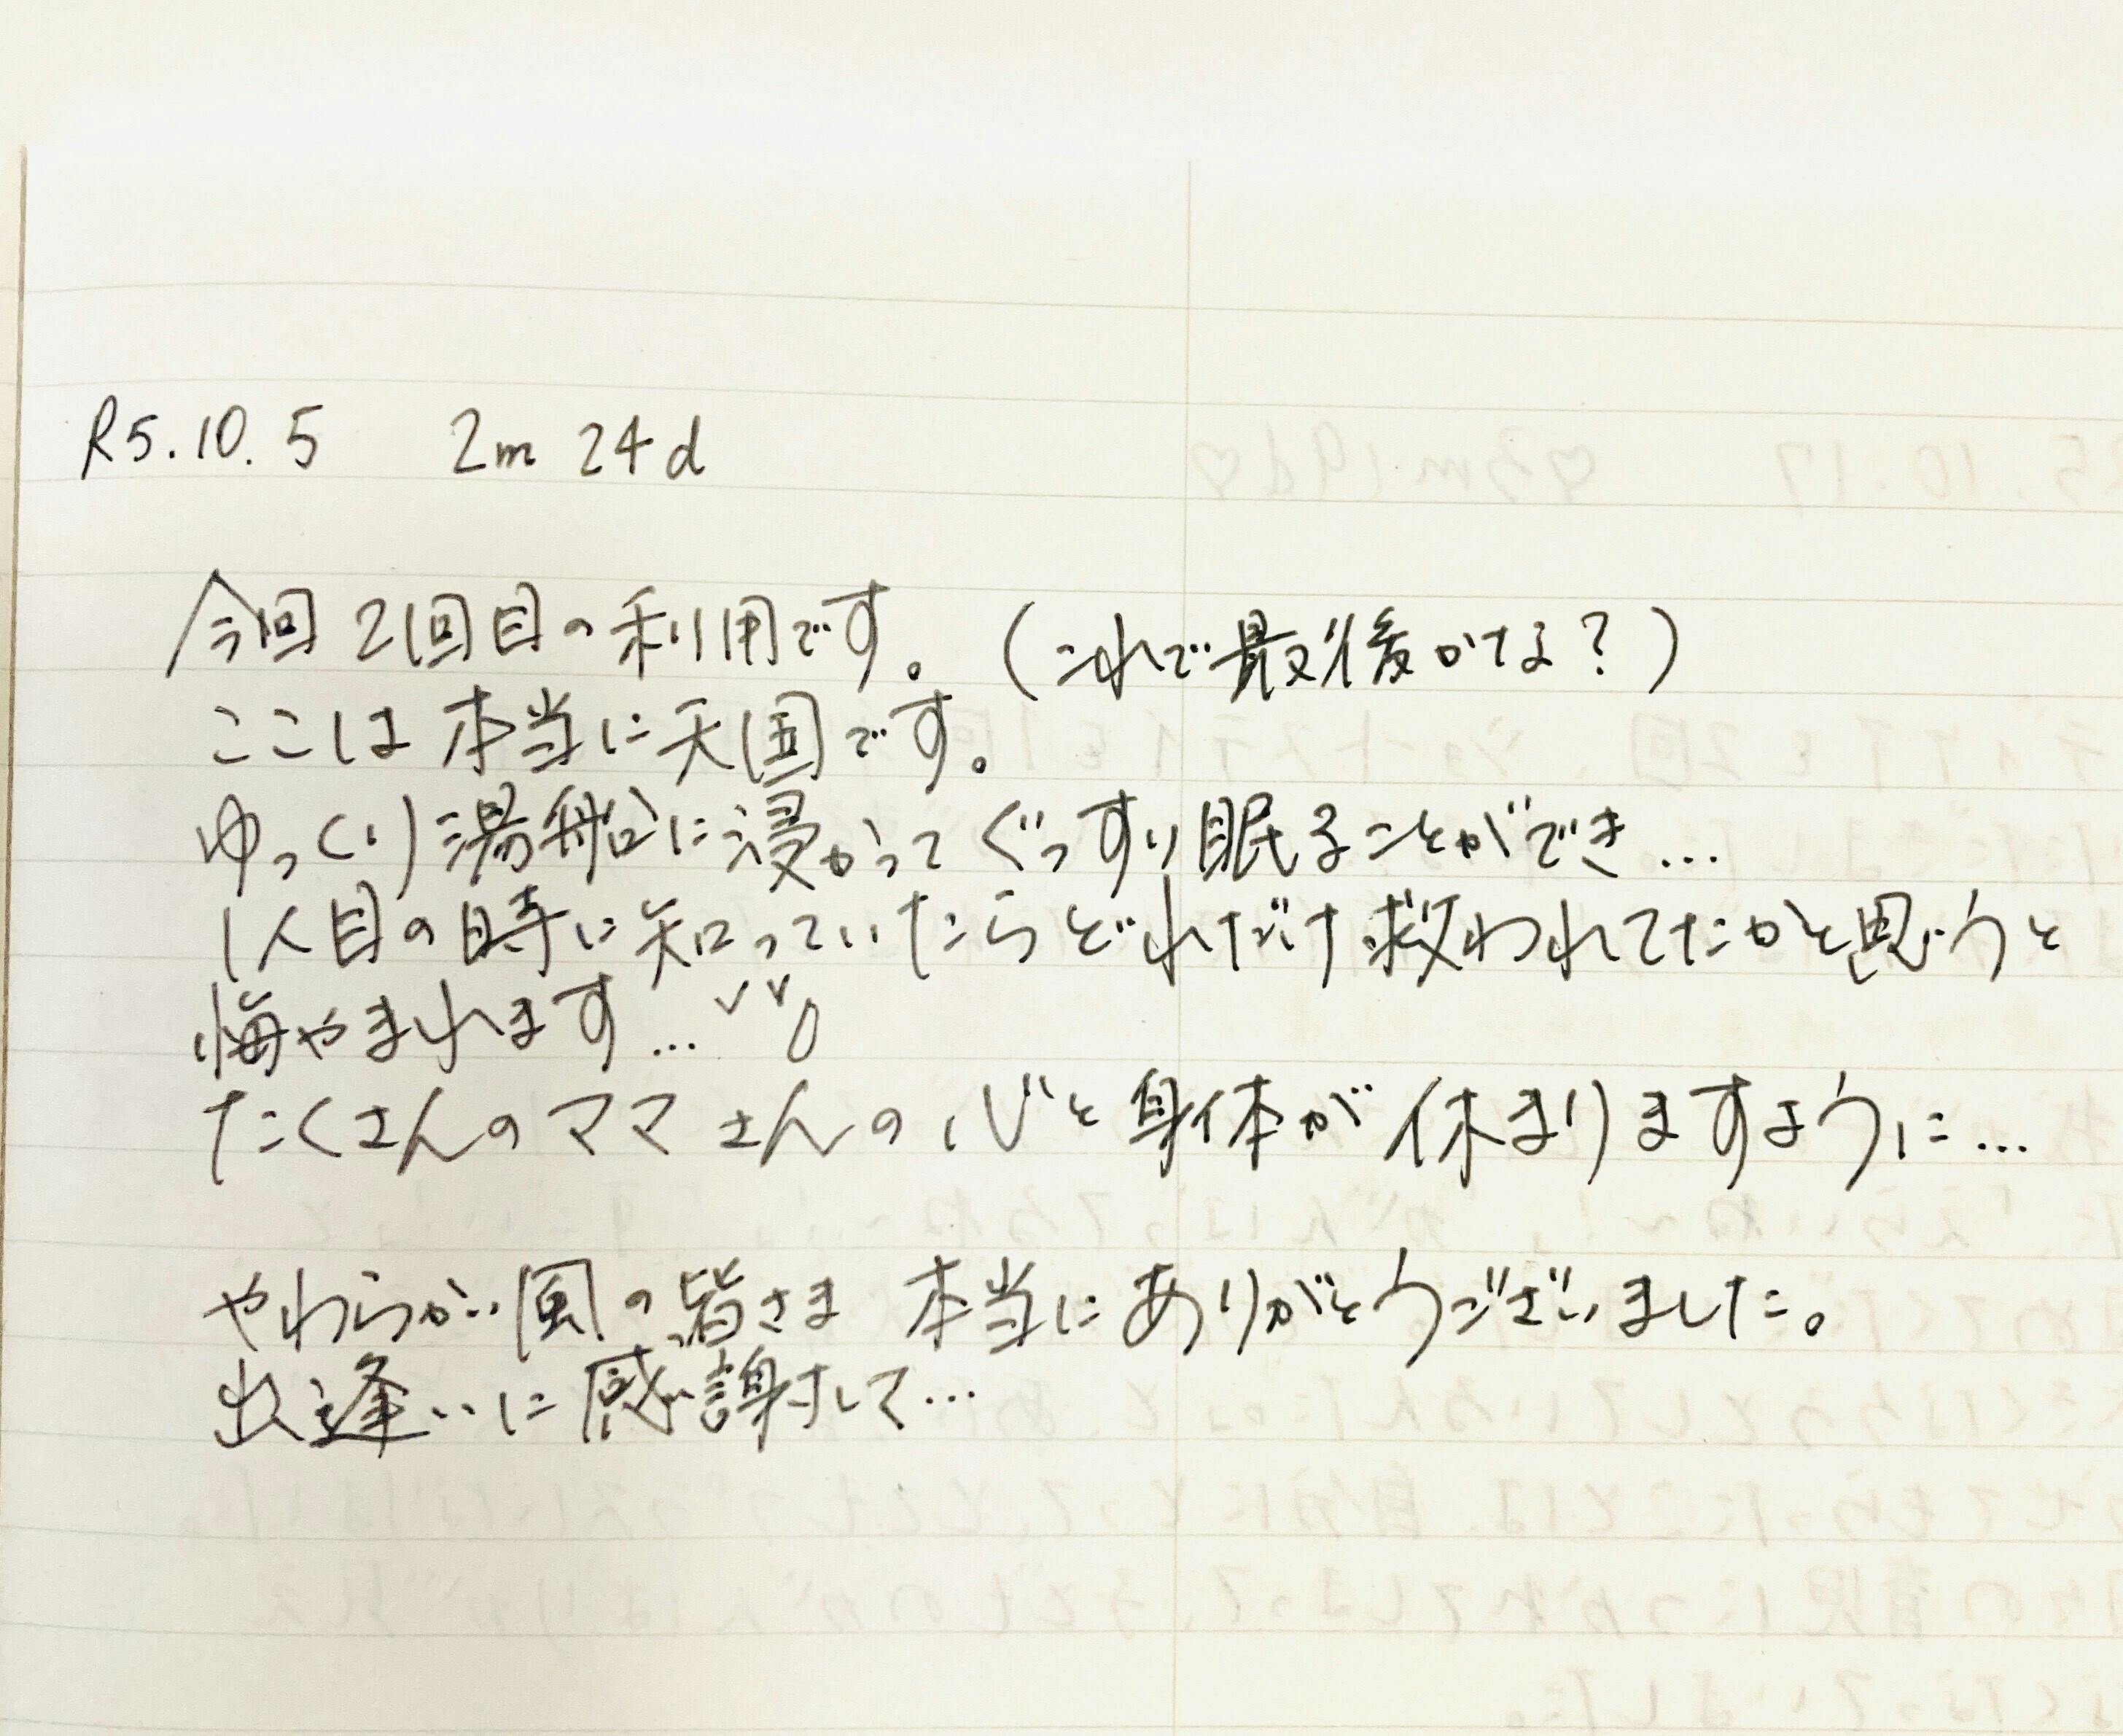 R5.10.5　2m 24d
今回2回目の利用です。(これで最後かなぁ?)
ここは本当に天国です。
ゆっくり湯船に浸かってぐっすり眠ることができ…
1人目の時に知っていたらどれだけ救われてたかと思うと
悔やまれます…
たくさんのママさんの心と身体が休まりますように…
やわらかい風の皆さま 本当にありがとうございました。
出逢いに感謝して…